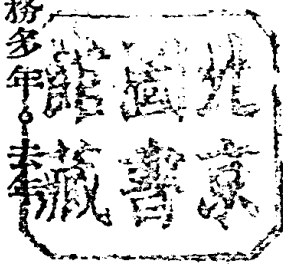 北京
圖書
館藏
務多年。去年